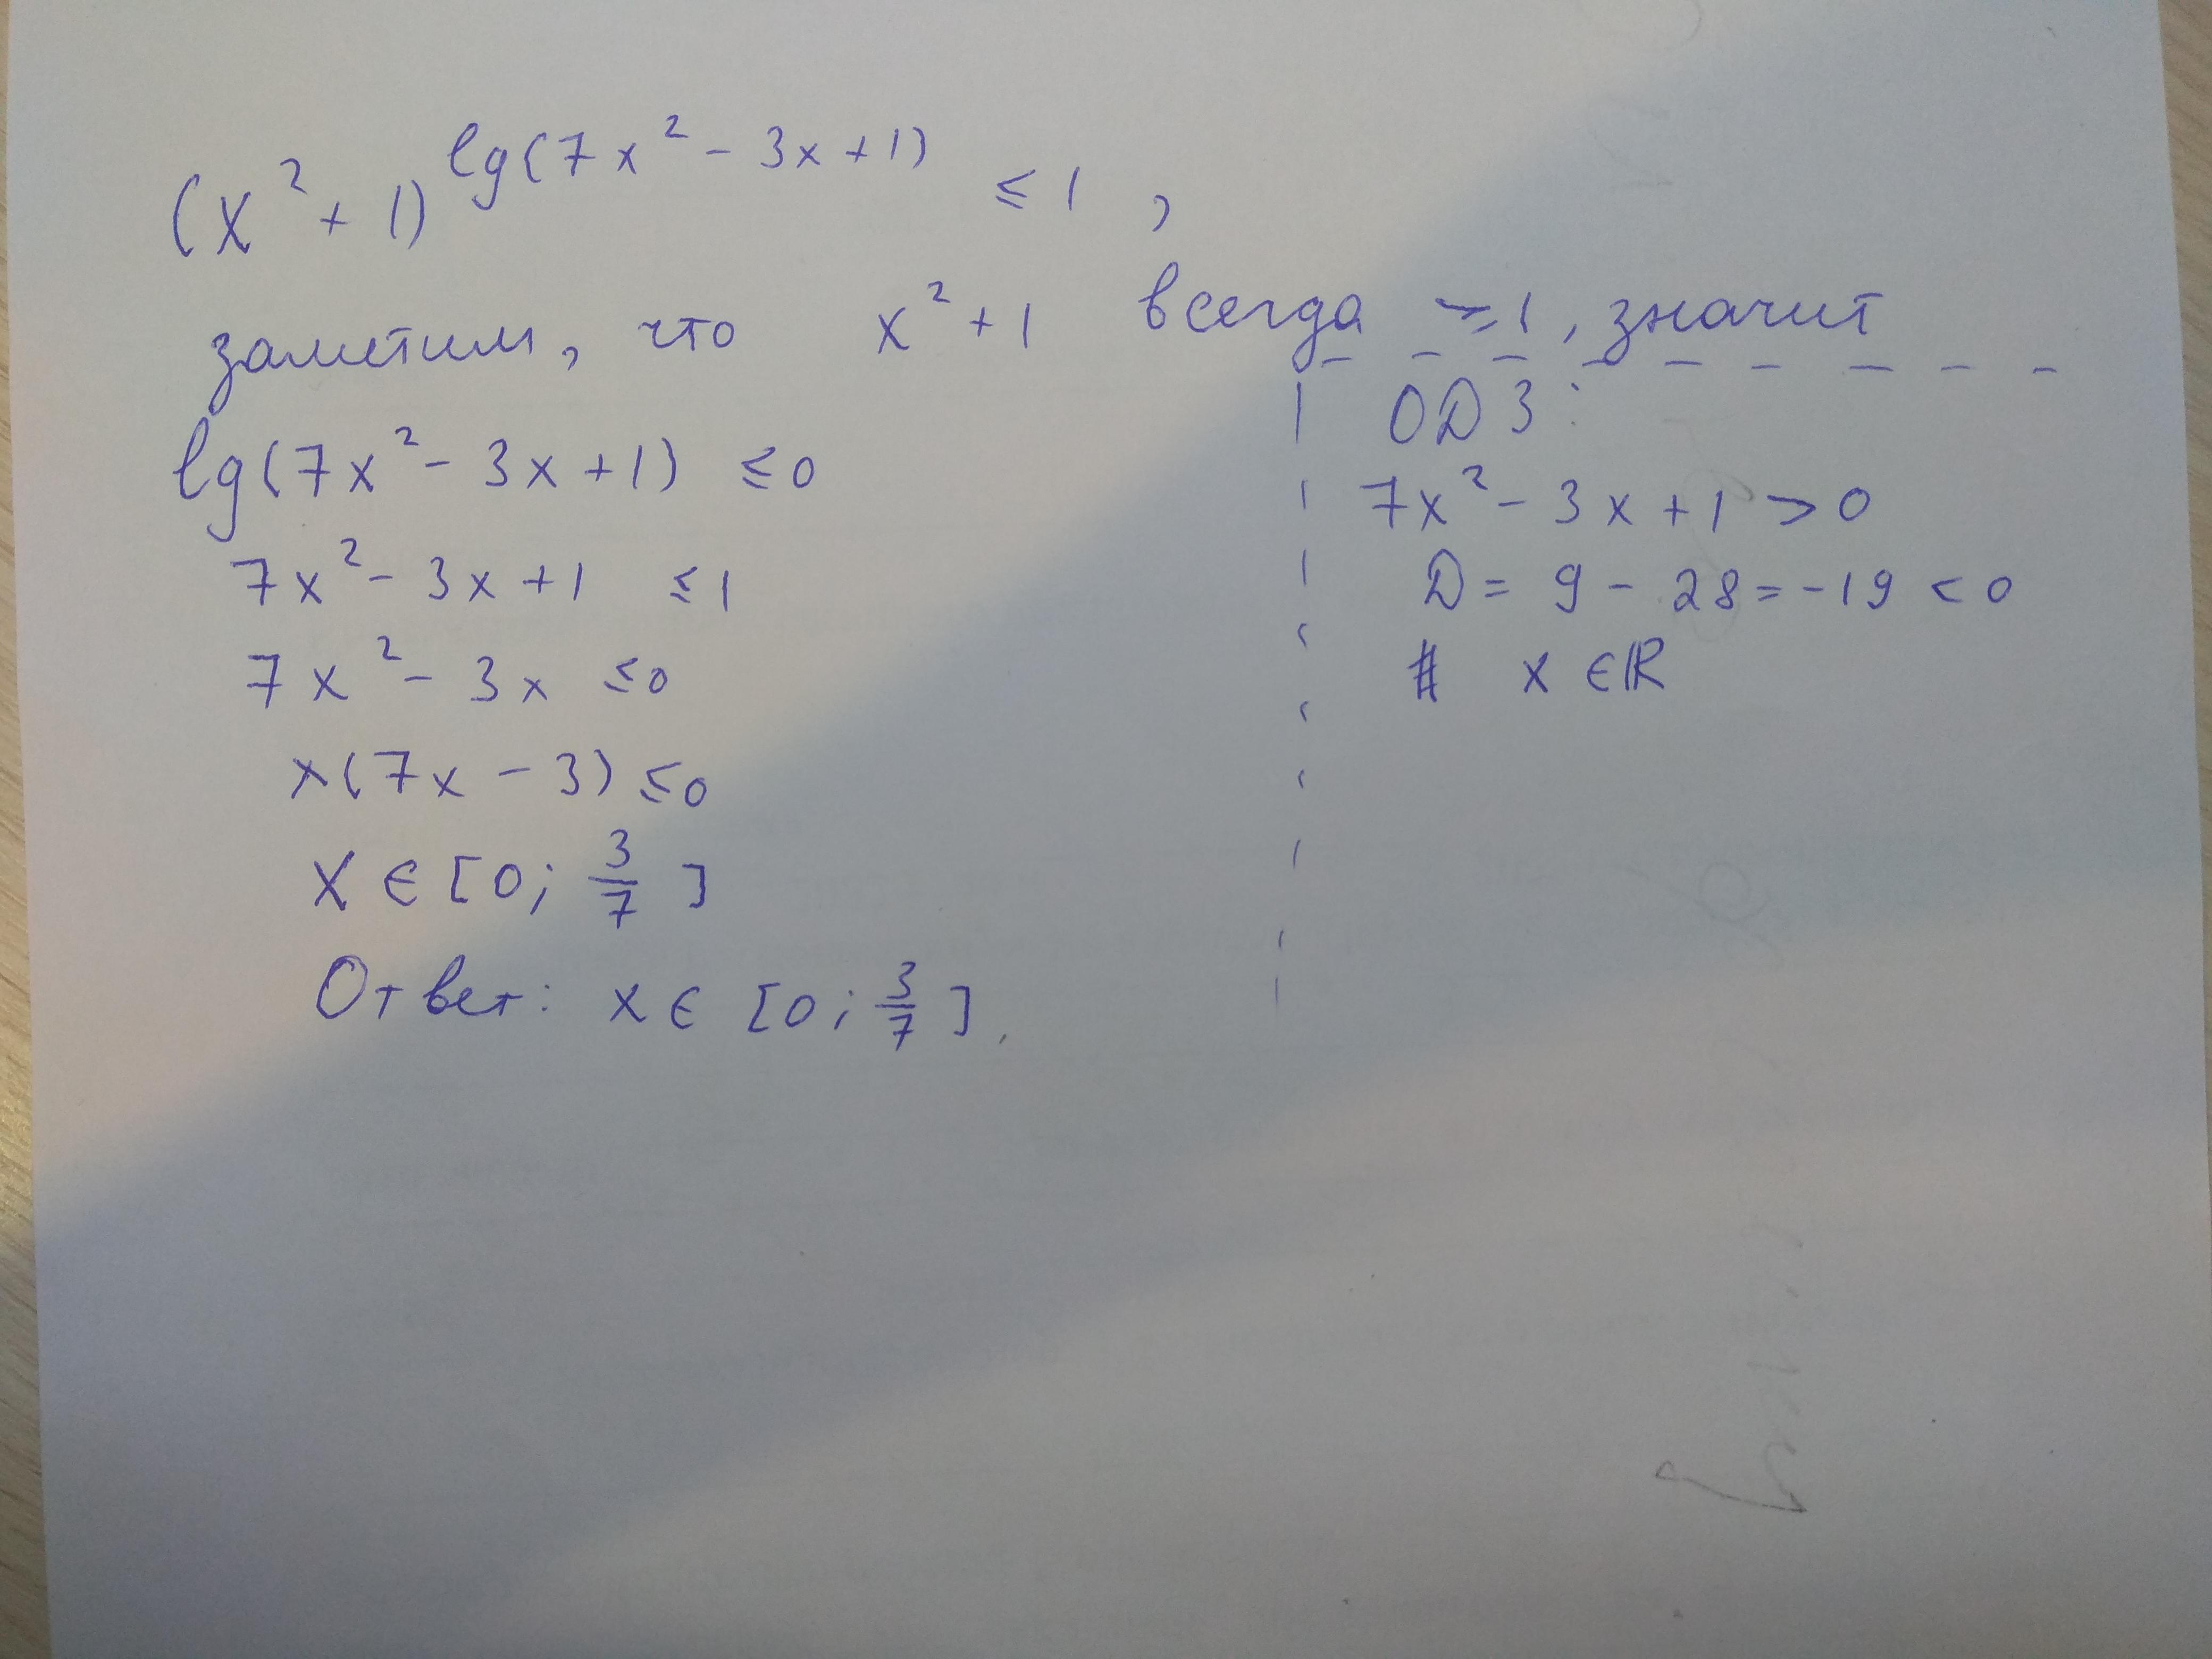 (x² + 1)^lg(7x² - 3x + 1) ≤ 1 ,
заметим, что x² + 1 всегда ≥ 1, значит
lg(7x² - 3x + 1) ≤ 0
7x² - 3x + 1 ≤ 1
7x² - 3x ≤ 0
x(7x - 3) ≤ 0
x ∈ [0; 3/7]
Ответ: x ∈ [0; 3/7].
ОДЗ:
7x² - 3x + 1 > 0
D = 9 - 28 = -19 < 0
x ∈ ℝ